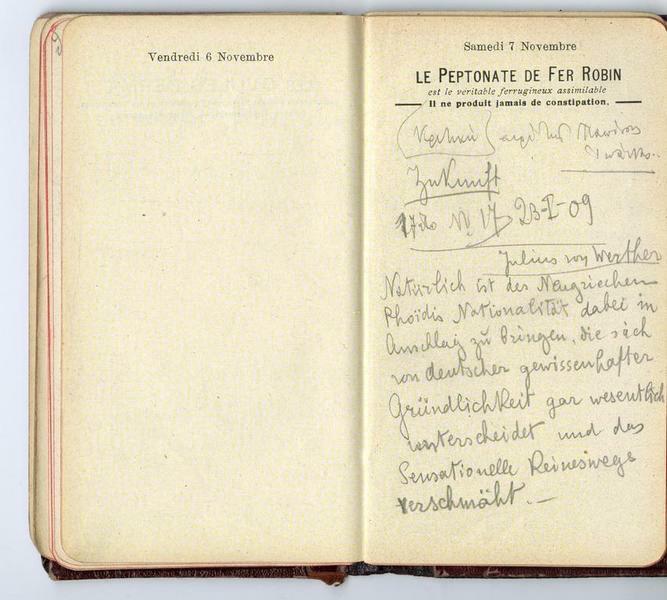 Vendredi 6 Novembre
Samedi 7 Novembre
LE PEPTONATE DE FER ROBIN
est le veritable ferrugineux assimilable
Il ne produit jamais de constipation.
Zukunft
No 17 23-I-09
Julius von Werther
Natürlich ist des Neugriechen
Rhoïdis Nationalität dabei in
Anschlag zu bringen, die sich
von deutscher gewissenhafter
Gründlichkeit gar wesentlich
unterscheidet und das
Sensationelle Keineswegs
verschmäht. —